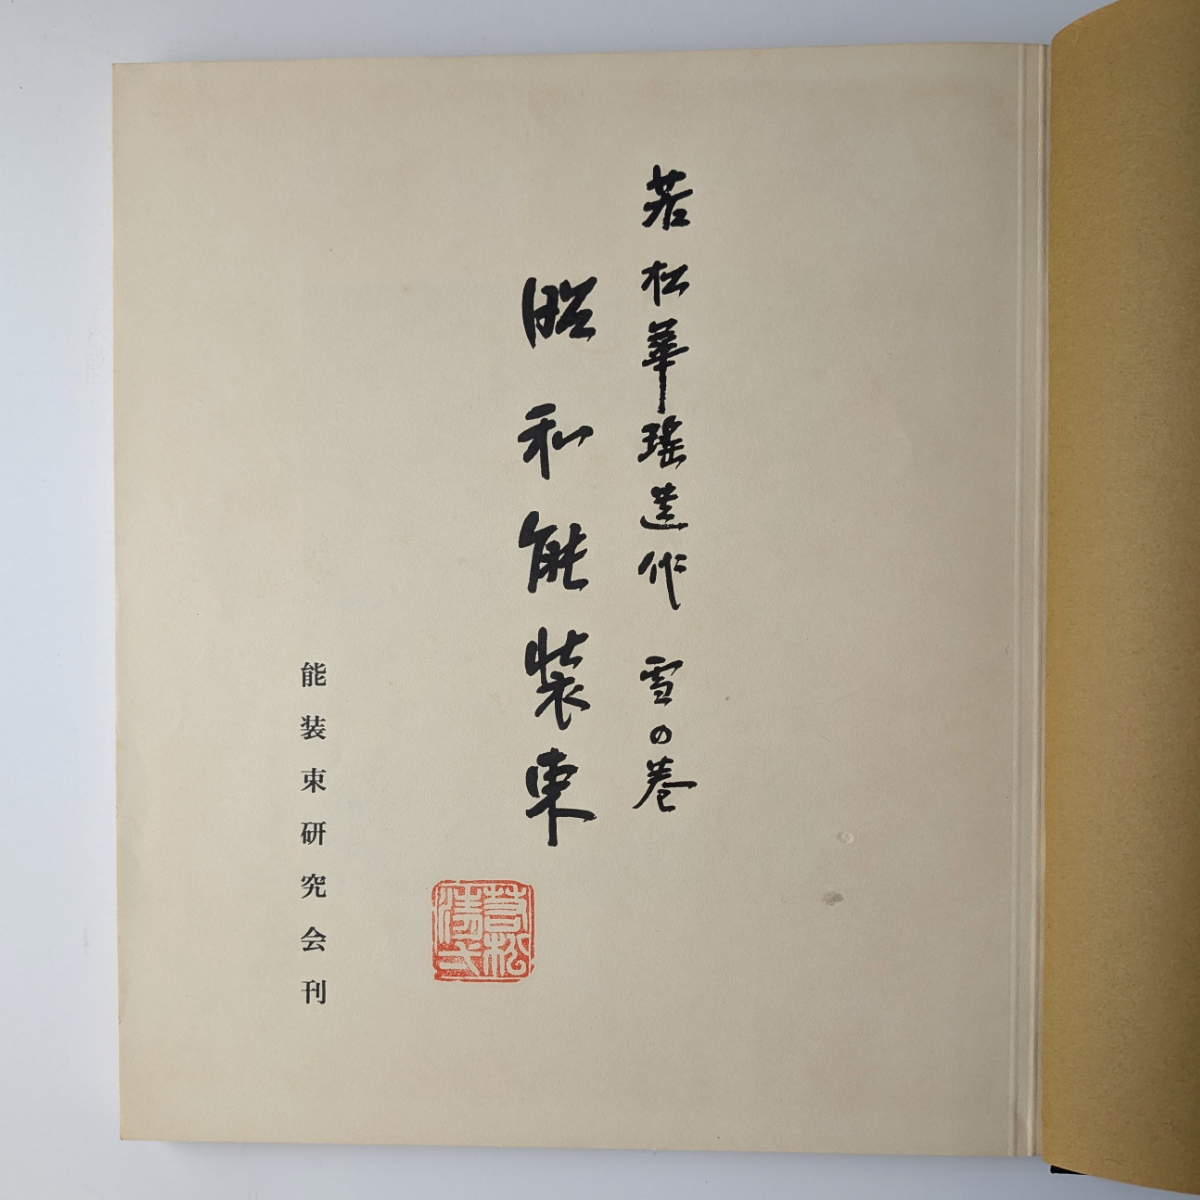 若松華瑶造作 雪の巻
昭和能装束
若松
清弌
能装束研究会刊